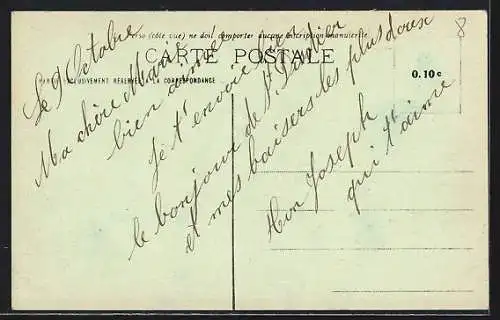 verso (côté vue) ne doit comporter aucune inscription manuscrite
CARTE POSTALE
EXCLUSIVEMENT RÉSERVÉE A LA CORRESPONDANCE
0.10 c
8
Le 9 Octobre
Ma chère Marie
bien aimée
Je t'envoie
le bonjour de St
et mes baisers les plus doux
Ton Joseph
qui t'aime